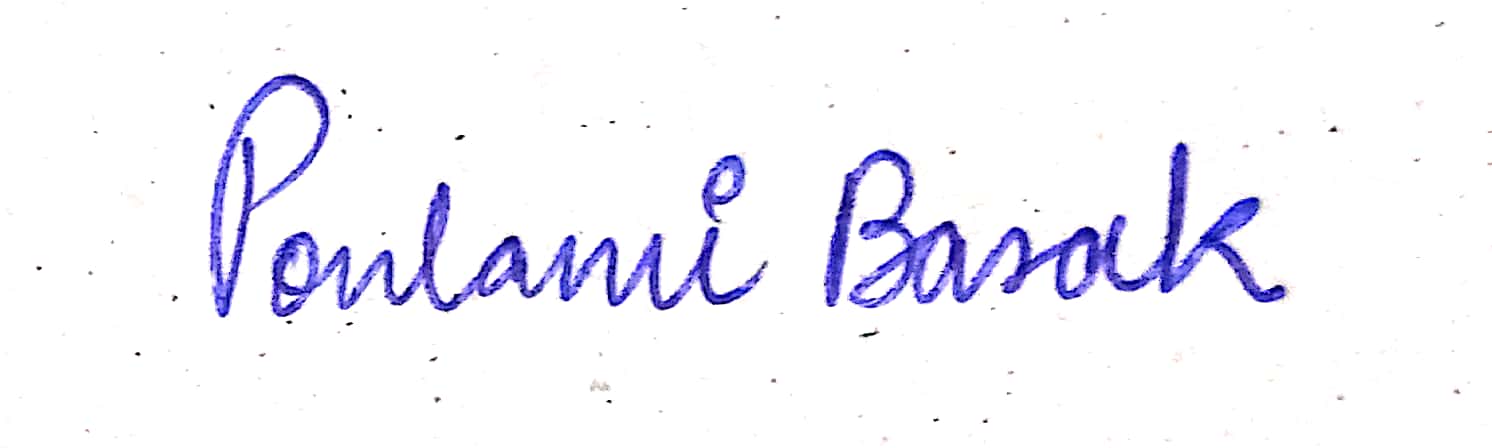 Poulami Basak